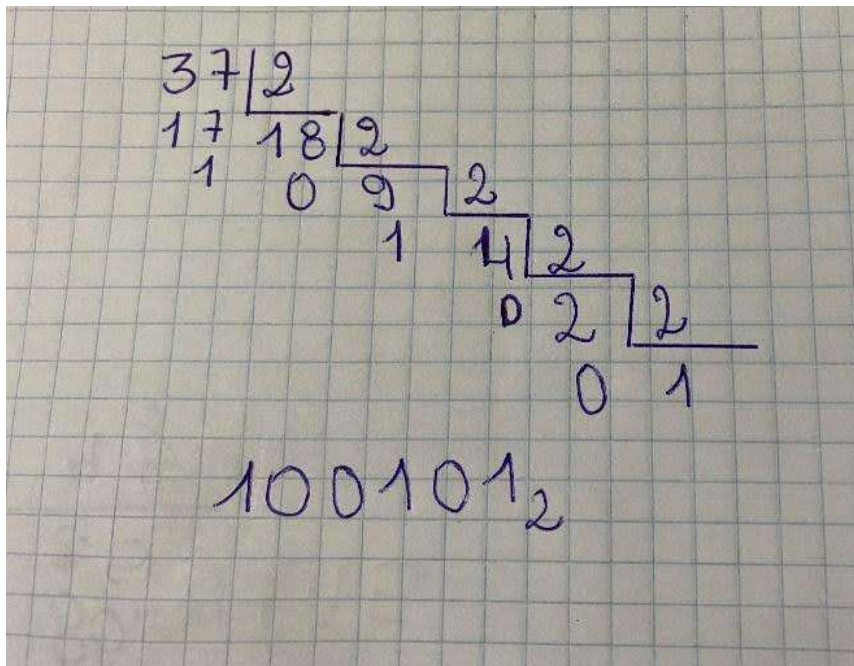 37 2
17 18 2
1 0 9 2
1 4 2
0 2 2
0 1
100101₂